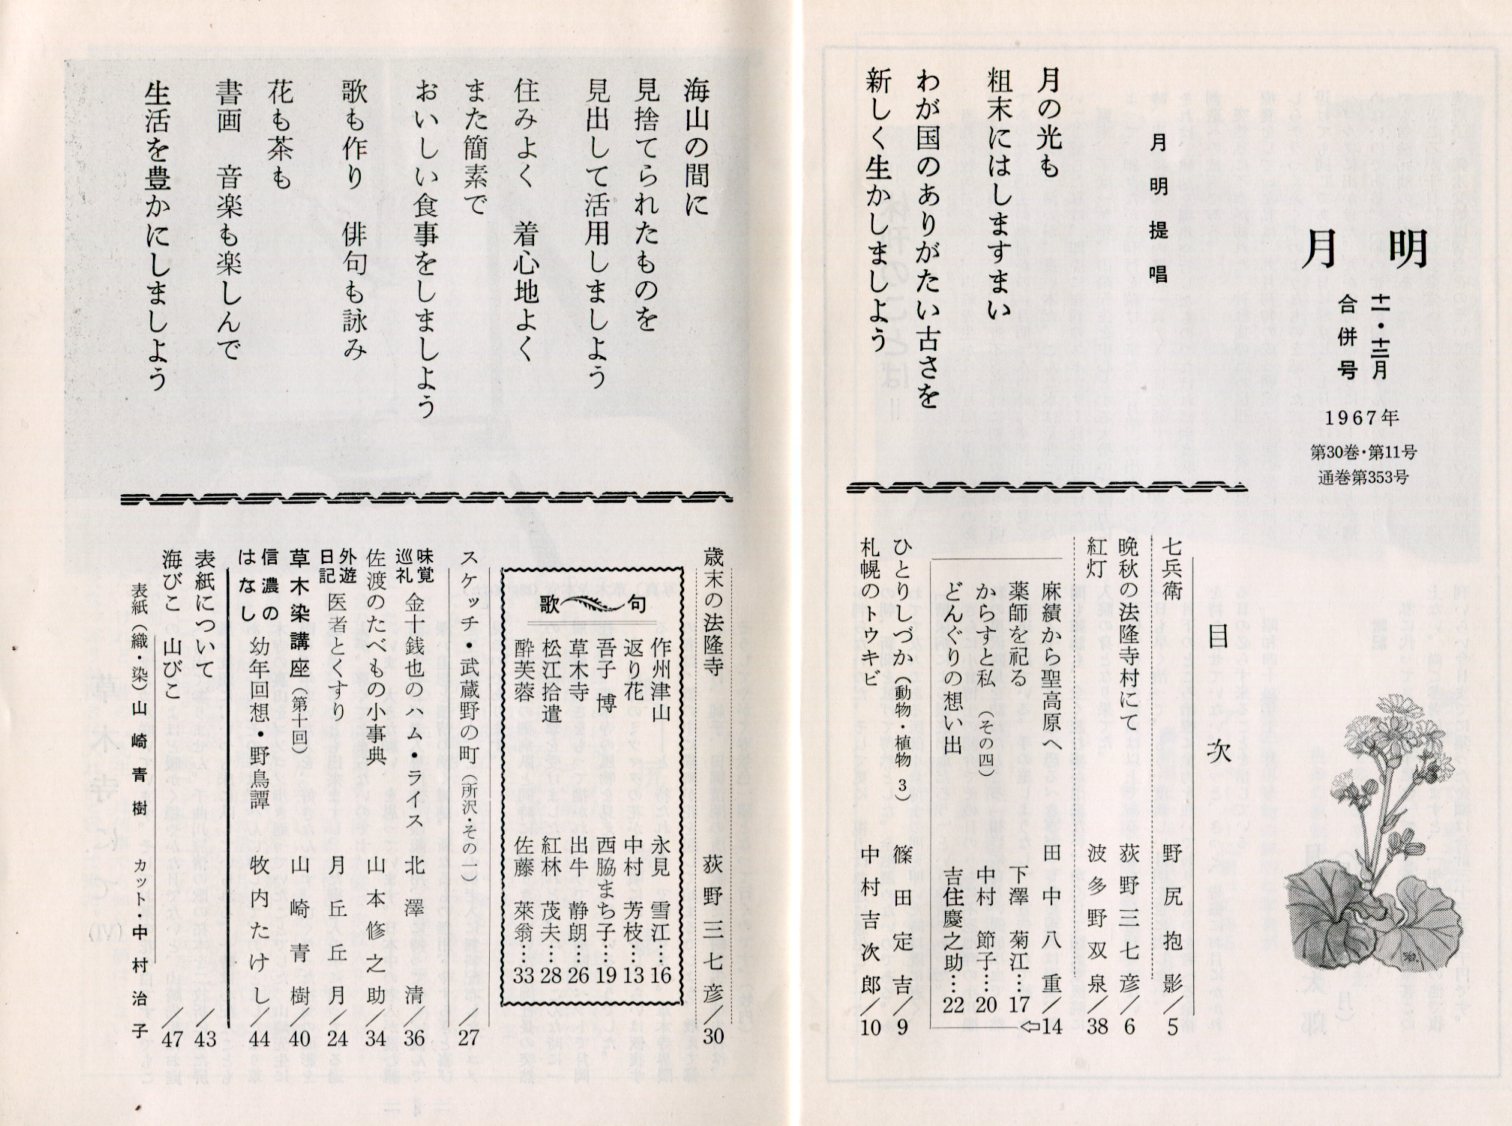 月明
十一・十二月
合併号
1967年
第30巻・第11号
通巻第353号
月明提唱
月の光も
粗末にはしますまい
わが国のありがたい古さを
新しく生かしましよう
海山の間に
見捨てられたものを
見出して活用しましよう
住みよく　着心地よく
また簡素で
おいしい食事をしましよう
歌も作り　俳句も詠み
花も茶も
書画　音楽も楽しんで
生活を豊かにしましよう
目次
七兵衛　野尻抱影／5
晩秋の法隆寺村にて　荻野三七彦／6
紅灯　波多野双泉／38
麻績から聖高原へ　田中八重／14
薬師を祀る　下澤菊江…17
からすと私（その四）　中村節子…20
どんぐりの想い出　吉住慶之助…22
⇦
ひとりしづか（動物・植物 3）　篠田定吉／9
札幌のトウキビ　中村吉次郎／10
歳末の法隆寺　荻野三七彦／30
歌　句
作州津山　永見雪江…16
返り花　中村芳枝…13
吾子　博　西脇まち子…19
草木寺　出牛静朗…26
松江拾遺　紅林茂夫…28
酔芙蓉　佐藤萊翁…33
スケッチ・武蔵野の町（所沢・その一）／27
味覚巡礼　金十銭也のハム・ライス　北澤清／36
佐渡のたべもの小事典　山本修之助／34
外遊日記　医者とくすり　月丘丘月／24
草木染講座（第十回）　山崎青樹／40
信濃のはなし　幼年回想・野鳥譚　牧内たけし／44
表紙について／43
海びこ　山びこ／47
表紙（織・染）山崎青樹　カット・中村治子